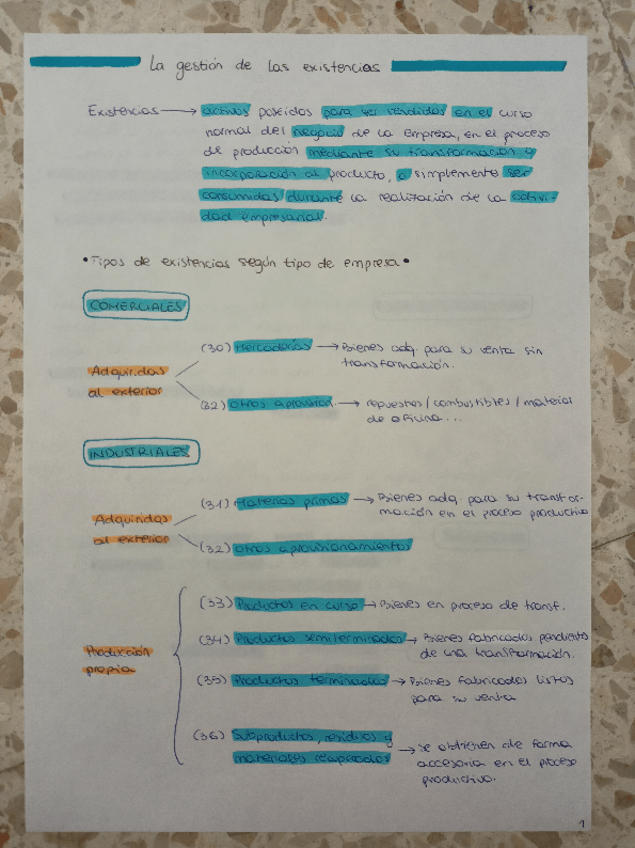 La gestión de las existencias
Existencias → activos poseidos para ser vendidos en el curso
normal del negocio de la empresa, en el proceso
de producción mediante su transformación y
incorporación al producto, o simplemente ser
consumidas durante la realización de la activi-
dad empresarial.
• Tipos de existencias según tipo de empresa •
COMERCIALES
Adquiridas
al exterior
(30) Mercaderías → Bienes adq. para su venta sin
transformación.
(32) Otros aprovision. → repuestos / combustibles / material
de oficina...
INDUSTRIALES
Adquiridas
al exterior
(31) Materias primas → Bienes adq. para su transfor-
mación en el proceso productivo
(32) Otros aprovisionamientos
Producción
propia
(33) Productos en curso → Bienes en proceso de transf.
(34) Productos semiterminados → Bienes fabricados pendientes
de una transformación.
(35) Productos terminados → Bienes fabricados listos
para su venta
(36) Subproductos, residuos y
materiales recuperados → se obtienen de forma
accesoria en el proceso
productivo.
1